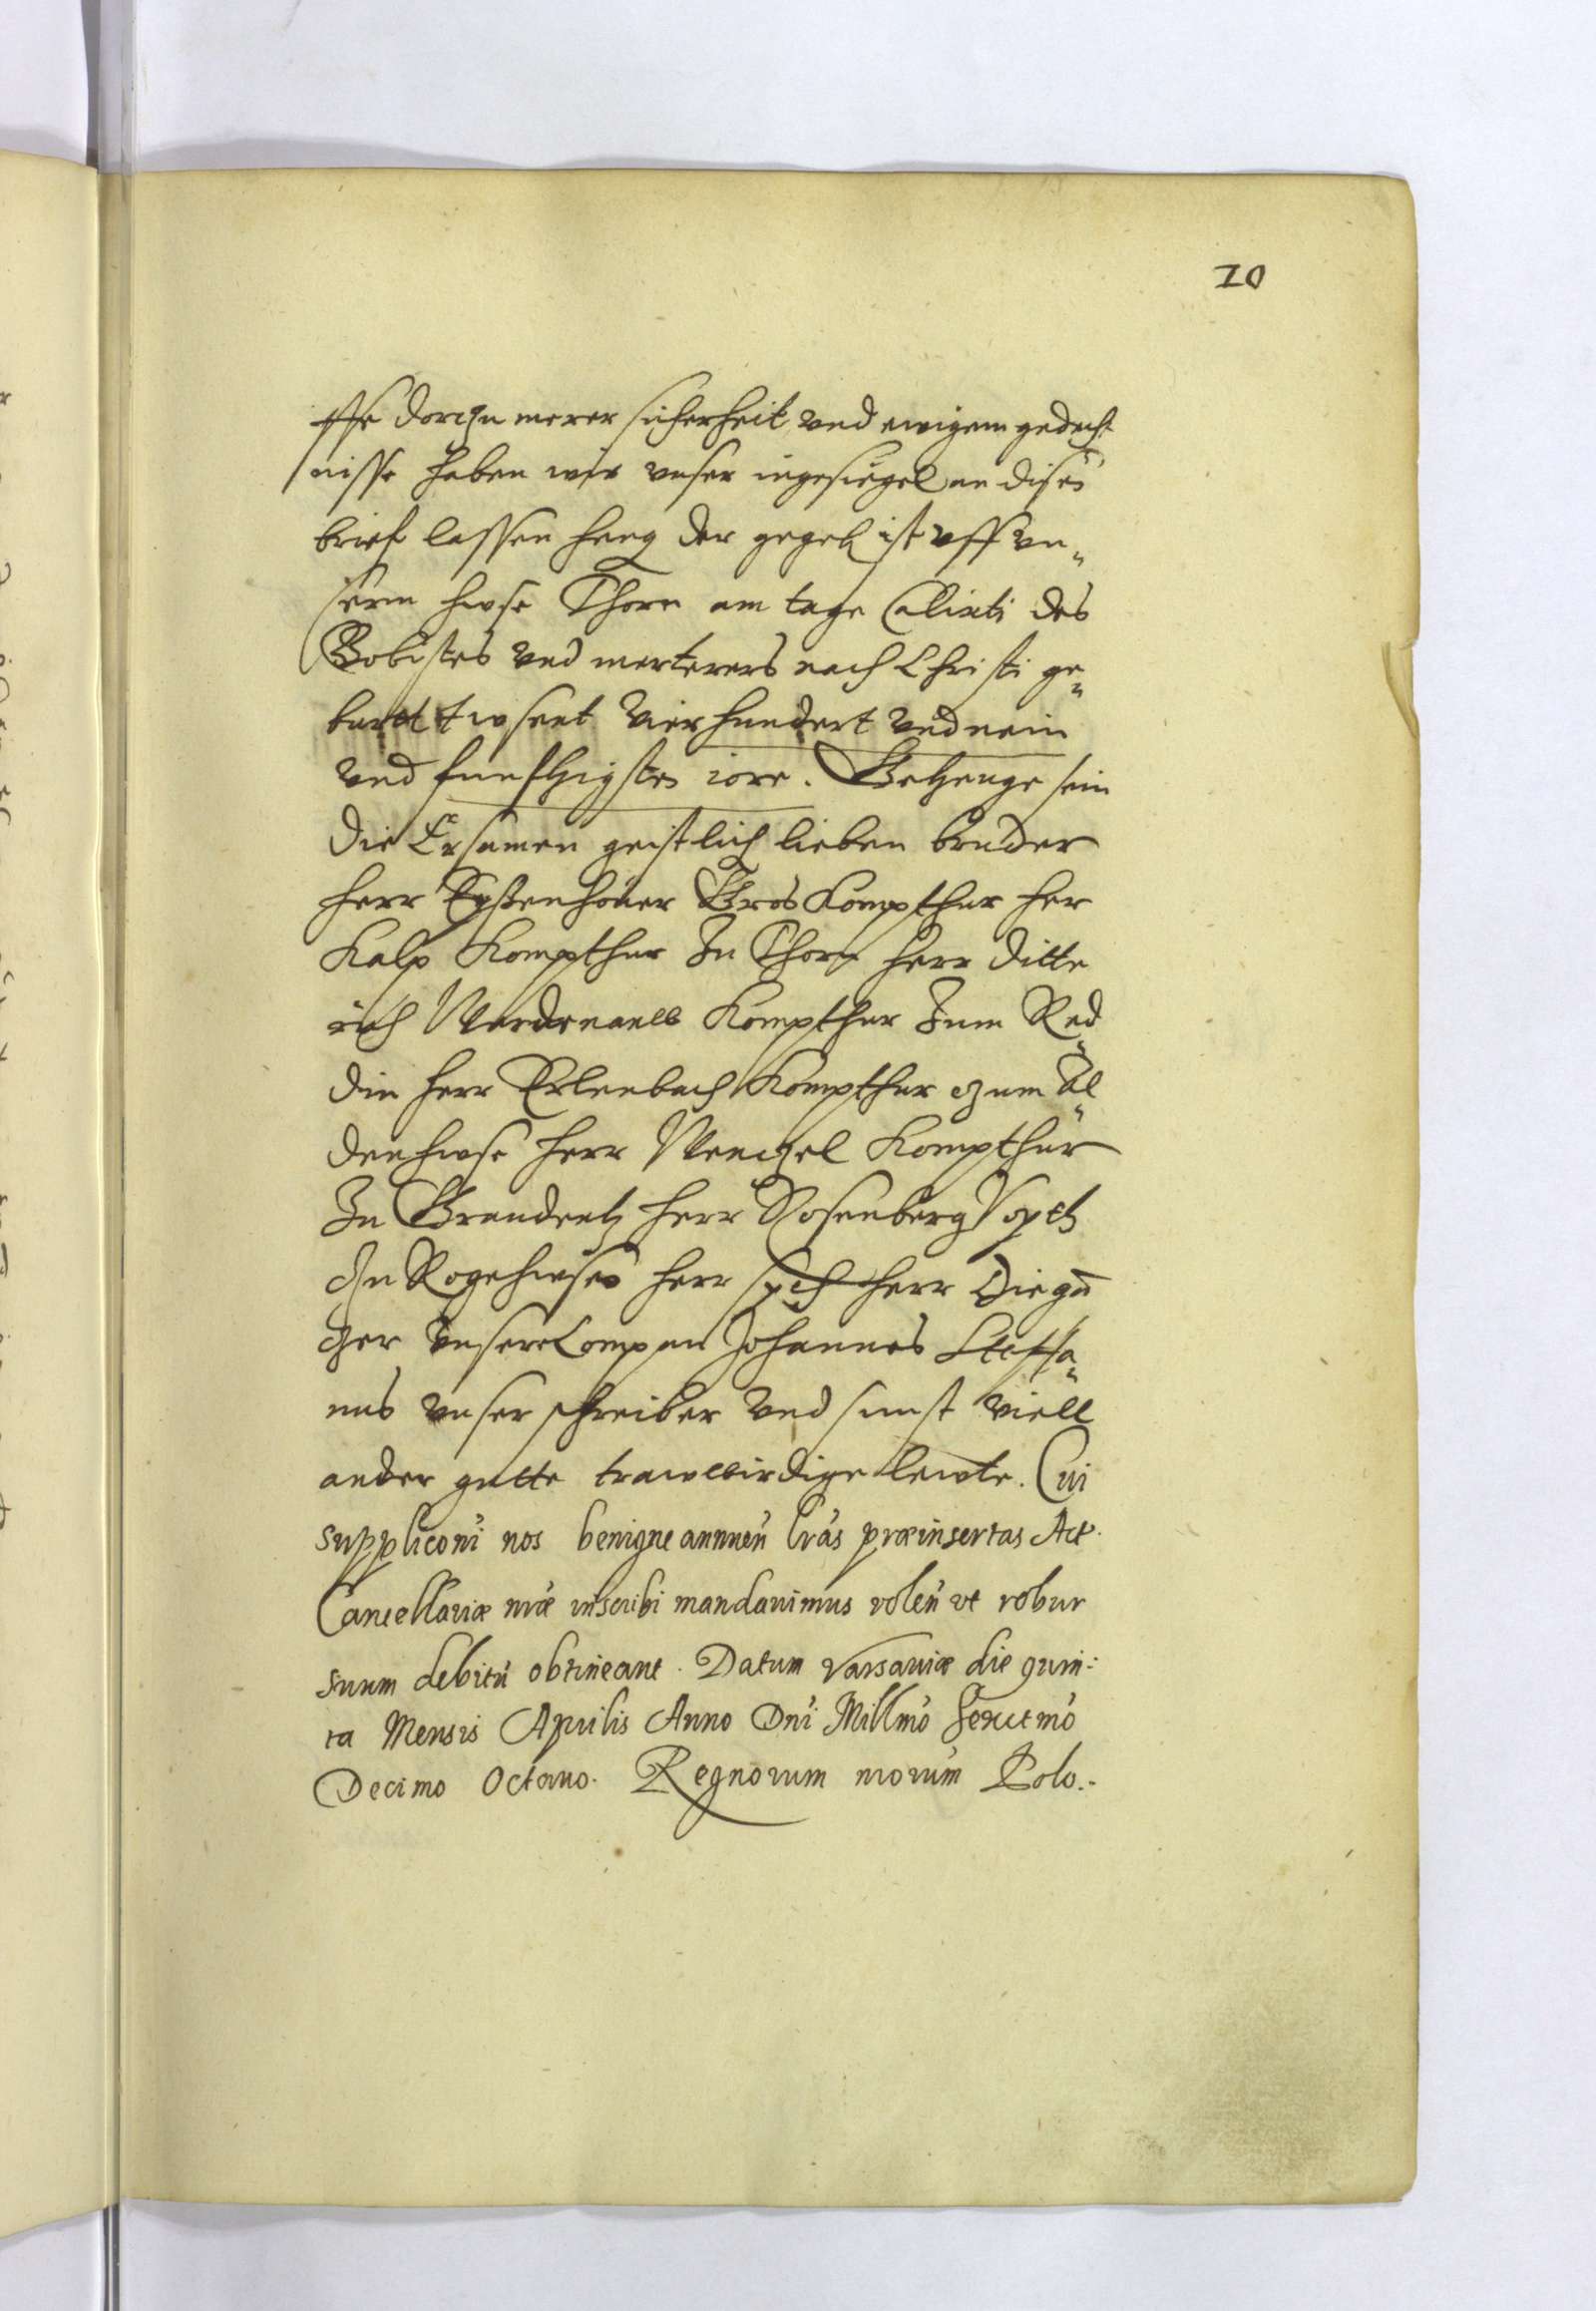 10
sse dorczu merer sicherheit vnd ewigem gedech-
nisse haben wir vnser ingesiegel an disen
brief lassen heng der gegeb ist vff vn„
serm hwse Thorn am tage Calixti des
Bobistes vnd merterers nach Christi ge„
burtt twsent vierhundert vnd nein
vnd funfftzigsten iore. Getzeuge sein
die Ersamen geistlich lieben bruder
herr Eysenhoner Gros Kompthur her
Kalp Kompthur zu Thorn herr ditte
rich Kompthur zum Red„
din herr Erlenbach Kompthur czum Al„
denhwse herr Wenczel Kompthur
zu Graudentz herr Rosenberg Voyth
czu Rogehwsen herr herr
czer vnsere Compan Johannes Steffa„
nus vnser schreiber vnd sunst viell
ander gutte trawwirdige lewte. Cui
suppliconi nos benigne annuen lras præinsertas Act.
Cancellariæ nræ inscribi mandauimus volen vt robur
suum debitu obtineant. Datum Varsaviæ die quin:
ta Mensis Aprilis Anno Dni Millmo Sexctmo
Decimo Octauo. Regnorum nrorum Polo.-